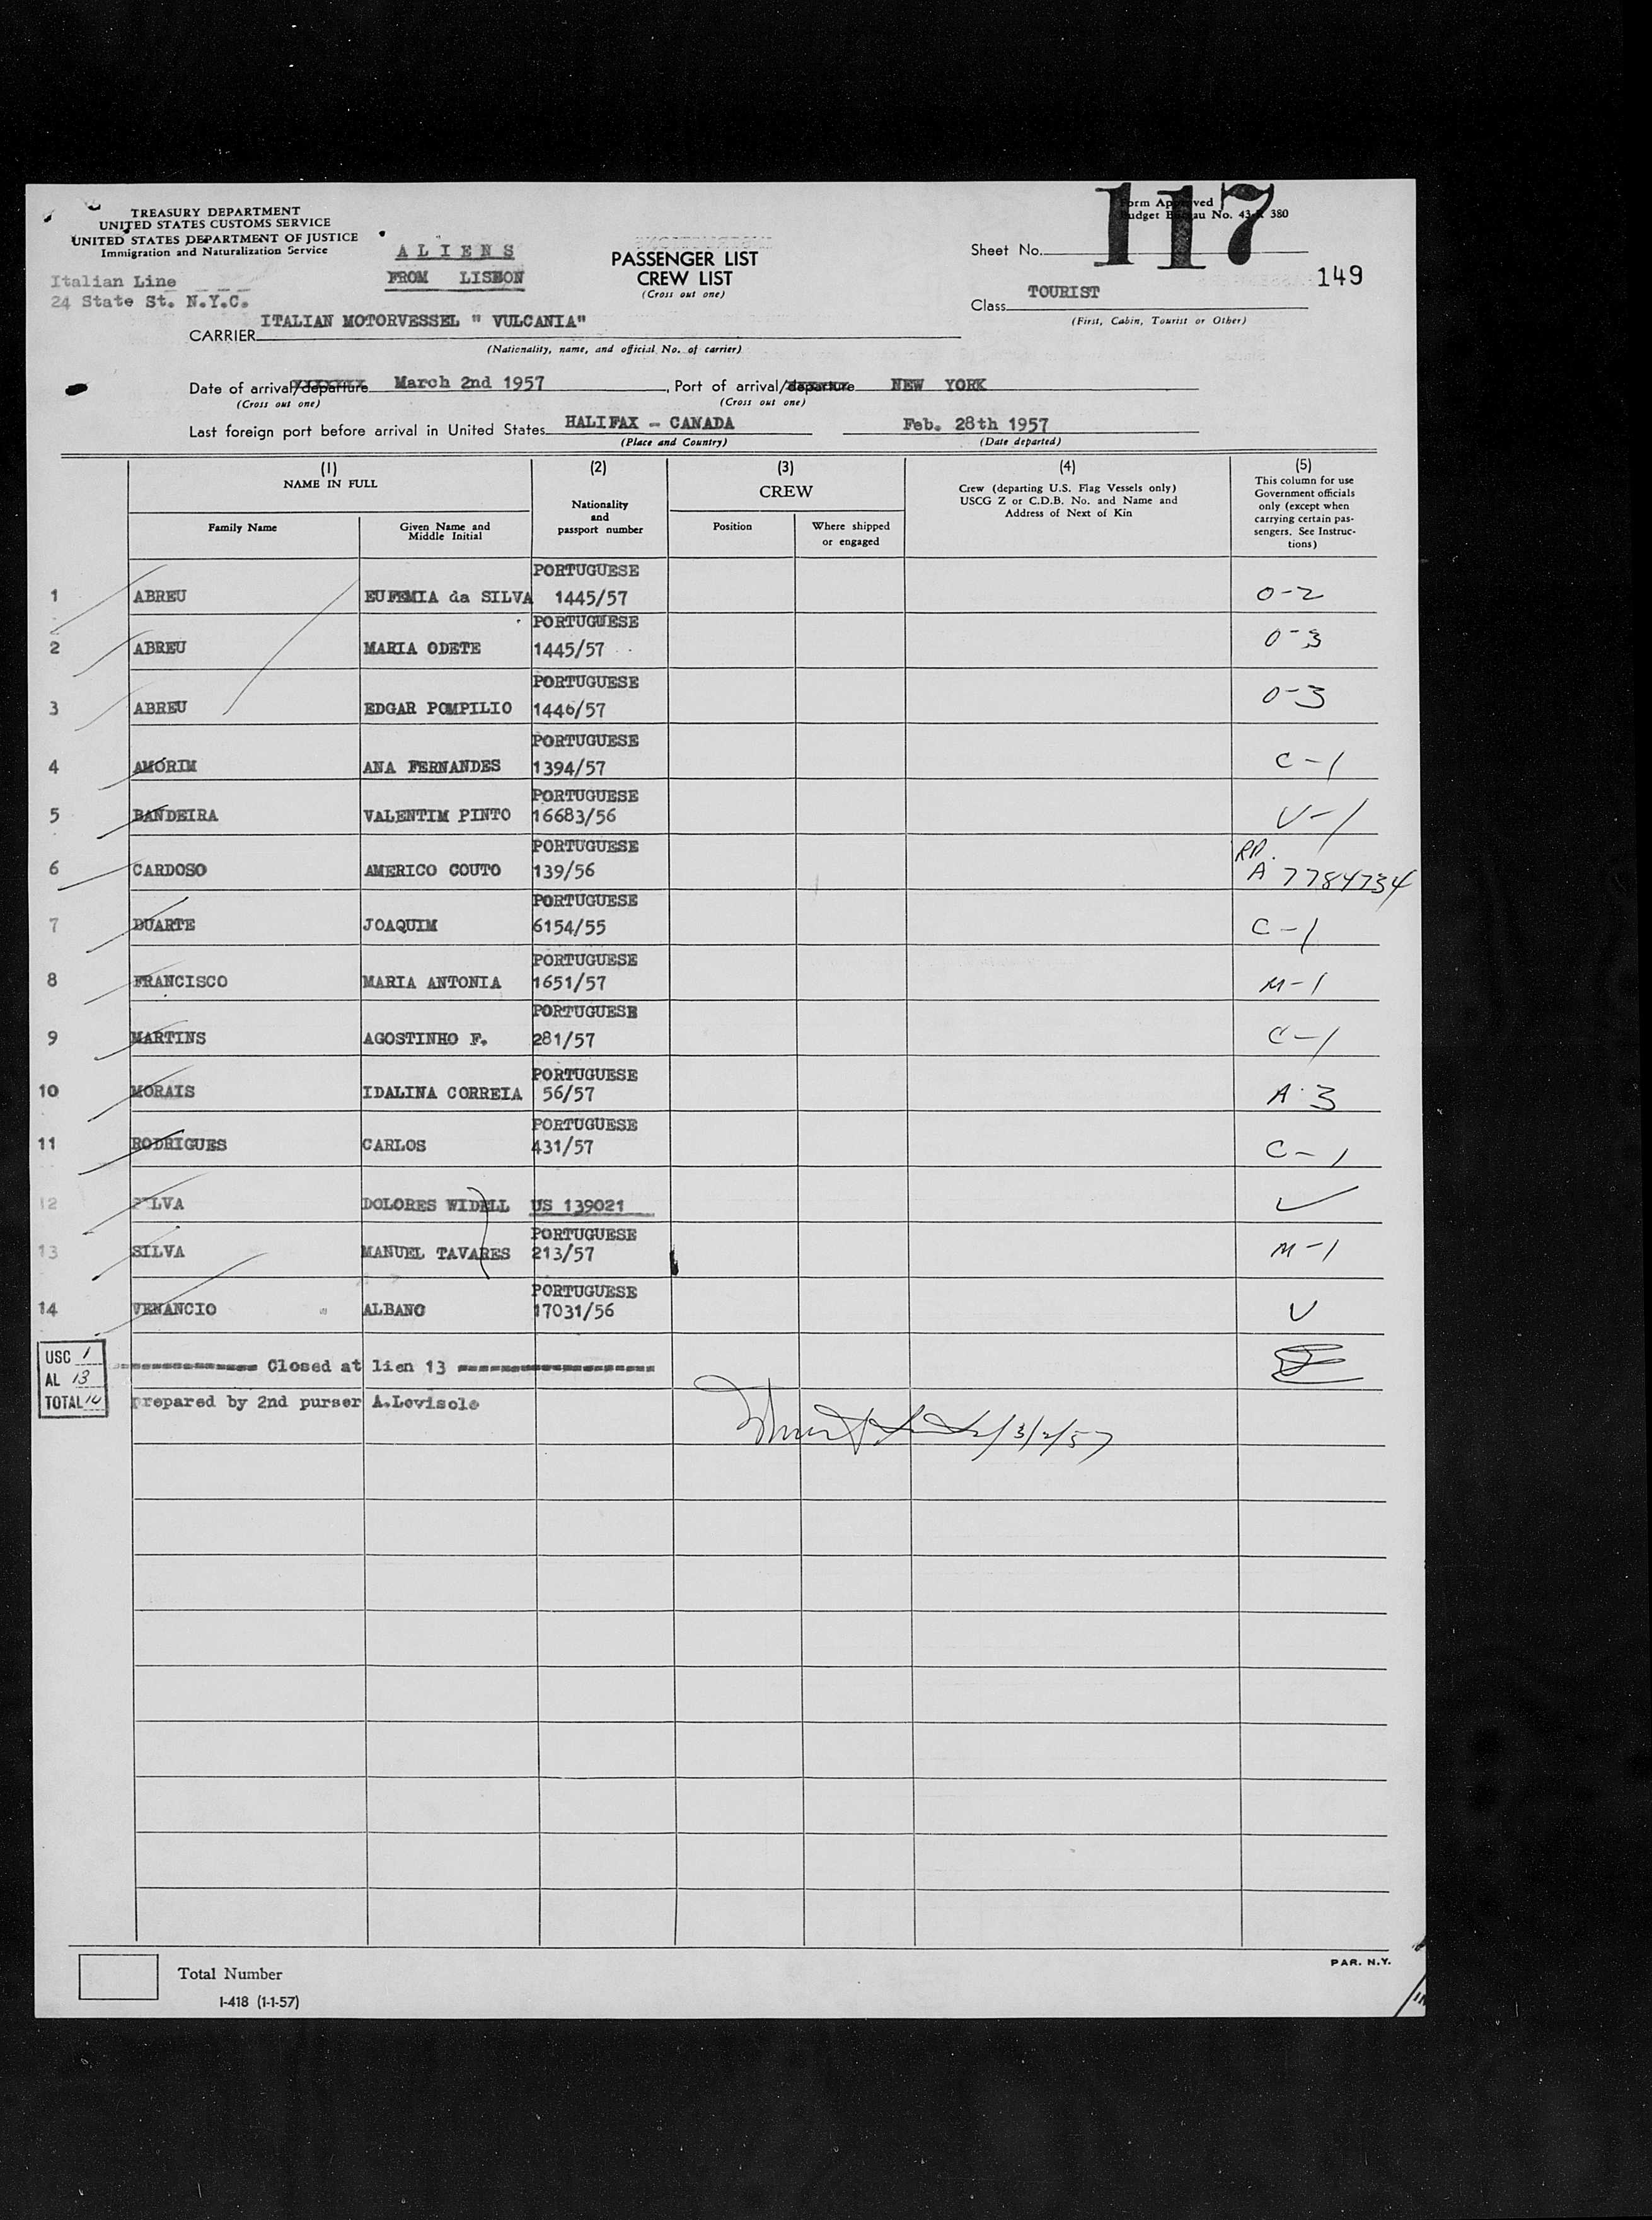 TREASURY DEPARTMENT
UNITED STATES CUSTOMS SERVICE
UNITED STATES DEPARTMENT OF JUSTICE
Immigration and Naturalization Service
Italian Line
24 State St. N.Y.C.
ALIENS
FROM LISBON
PASSENGER LIST
CREW LIST
(Cross out one)
Form Approved
Budget Bureau No. 43-R 380
Sheet No.
117
149
Class TOURIST
(First, Cabin, Tourist or Other)
CARRIER ITALIAN MOTORVESSEL " VULCANIA"
(Nationality, name, and official No. of carrier)
Date of arrival/departure March 2nd 1957, Port of arrival/departure NEW YORK
(Cross out one) (Cross out one)
Last foreign port before arrival in United States HALIFAX - CANADA Feb. 28th 1957
(Place and Country) (Date departed)
(1) (2) (3) (4) (5)
NAME IN FULL
Family Name
Given Name and
Middle Initial
Nationality
and
passport number
CREW
Position
Where shipped
or engaged
Crew (departing U.S. Flag Vessels only)
USCG Z or C.D.B. No. and Name and
Address of Next of Kin
This column for use
Government officials
only (except when
carrying certain pas-
sengers. See Instruc-
tions)
PORTUGUESE
1 ABREU EUFEMIA da SILVA 1445/57 O-2
PORTUGUESE
2 ABREU MARIA ODETE 1445/57 O-3
PORTUGUESE
3 ABREU EDGAR POMPILIO 1446/57 O-3
PORTUGUESE
4 AMORIM ANA FERNANDES 1394/57 C-1
PORTUGUESE
5 BANDEIRA VALENTIM PINTO 16683/56 V-1
PORTUGUESE
6 CARDOSO AMERICO COUTO 139/56 A 7784734
PORTUGUESE
7 DUARTE JOAQUIM 6154/55 C-1
PORTUGUESE
8 FRANCISCO MARIA ANTONIA 1651/57 M-1
PORTUGUESE
9 MARTINS AGOSTINHO F. 281/57 C-1
PORTUGUESE
10 MORAIS IDALINA CORREIA 56/57 A-3
PORTUGUESE
11 RODRIGUES CARLOS 431/57 C-1
12 SILVA DOLORES WIDELL US 139021
PORTUGUESE
13 SILVA MANUEL TAVARES 213/57 M-1
PORTUGUESE
14 VENANCIO " ALBANO 17031/56 V
USC 1
AL 13
TOTAL 14
Closed at lien 13
prepared by 2nd purser A.Lovisolo
3/2/57
Total Number
I-418 (1-1-57)
PAR. N.Y.